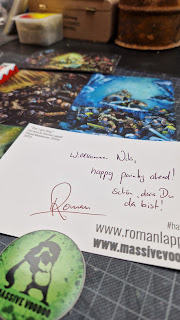 Willkommen Nils,
happy painty ahead!
schön, dass Du
da bist!
Roman
#ha
www.romanlapp
www.massivevoo
MASSIVE VOODOO